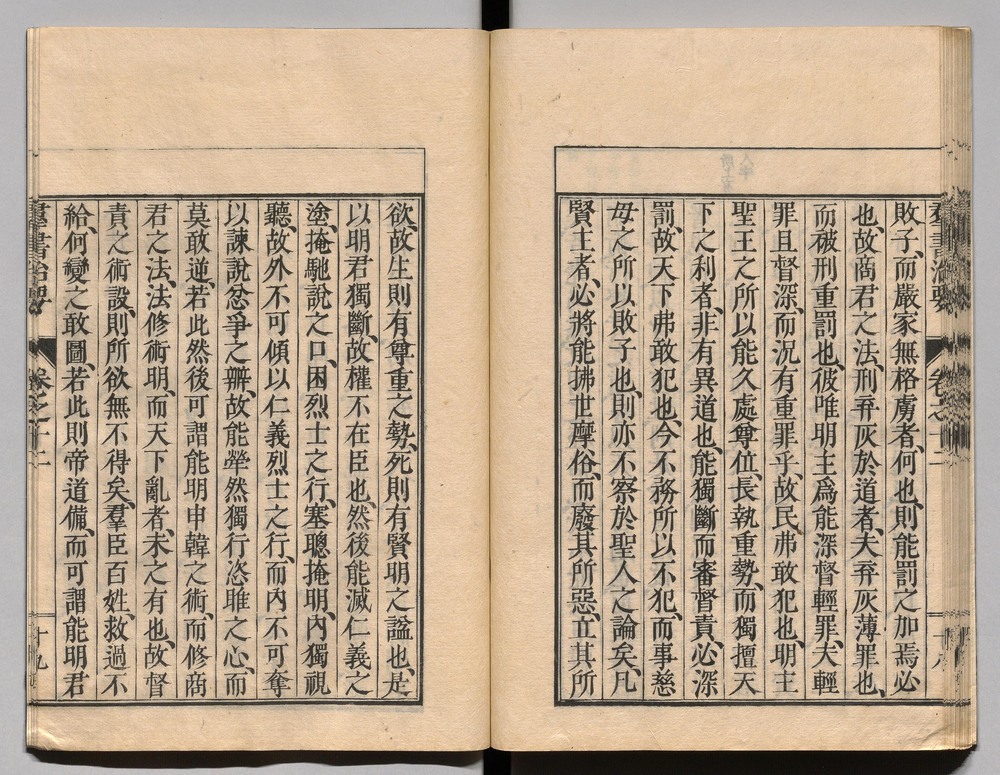 敗子、而嚴家無格虜者、何也、則能罰之加焉必
也、故商君之法、刑弃灰於道者、夫弃灰薄罪也、
而破刑重罰也、彼唯明主爲能深督輕罪、夫輕
罪且督深、而況有重罪乎、故民弗敢犯也、明主
聖王之所以能久處尊位、長執重勢、而獨擅天
下之利者、非有異道也、能獨斷、而審督責、必深
罰、故天下弗敢犯也、今不務所以不犯、而事慈
母之所以敗子也、則亦不察於聖人之論矣、凡
賢主者、必將能拂世摩俗、而廢其所惡、立其所
欲、故生則有尊重之勢、死則有賢明之謚也、是
以明君獨斷、故權不在臣也、然後能滅仁義之
塗、掩馳說之口、困烈士之行、塞聰掩明、内獨視
聽、故外不可傾以仁義烈士之行、而内不可奪
以諫說忿爭之辯、故能犖然獨行恣睢之心、而
莫敢逆、若此然後可謂能明申韓之術、而修商
君之法、法修術明、而天下亂者、未之有也、故督
責之術設、則所欲無不得矣、羣臣百姓、救過不
給、何變之敢圖、若此則帝道備、而可謂能明君
羣書治要 卷之十二 十九